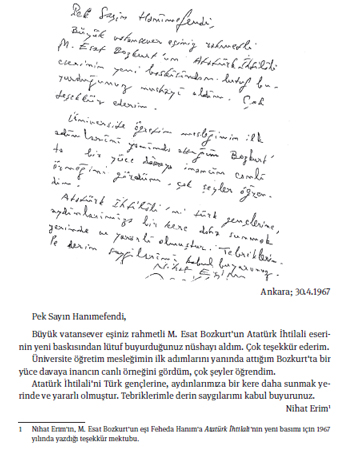 Pek Sayın Hanımefendi,
Büyük vatansever eşiniz rahmetli
M. Esat Bozkurt'un Atatürk İhtilâli
eserinin yeni baskısından lütuf bu-
yurduğunuz nüshayı aldım. Çok
teşekkür ederim.
Üniversite öğretim mesleğimin ilk
adımlarını yanında attığım Bozkurt'
ta bir yüce davaya inancın canlı
örneğini gördüm, çok şeyler öğren-
dim.
Atatürk İhtilâli'ni türk gençlerine,
aydınlarımıza bir kere daha sunmak
yerinde ve yararlı olmuştur. Tebriklerim-
le derin saygılarımı kabul buyurunuz.
Nihat Erim
Ankara; 30.4.1967
Pek Sayın Hanımefendi,
Büyük vatansever eşiniz rahmetli M. Esat Bozkurt'un Atatürk İhtilali eseri-
nin yeni baskısından lütuf buyurduğunuz nüshayı aldım. Çok teşekkür ederim.
Üniversite öğretim mesleğimin ilk adımlarını yanında attığım Bozkurt'ta bir
yüce davaya inancın canlı örneğini gördüm, çok şeyler öğrendim
Atatürk İhtilali'ni Türk gençlerine, aydınlarımıza bir kere daha sunmak ye-
rinde ve yararlı olmuştur. Tebriklerimle derin saygılarımı kabul buyurunuz.
Nihat Erim¹
1 Nihat Erim'in, M. Esat Bozkurt'un eşi Feheda Hanım'a Atatürk İhtilali'nin yeni basımı için 1967
yılında yazdığı teşekkür mektubu.